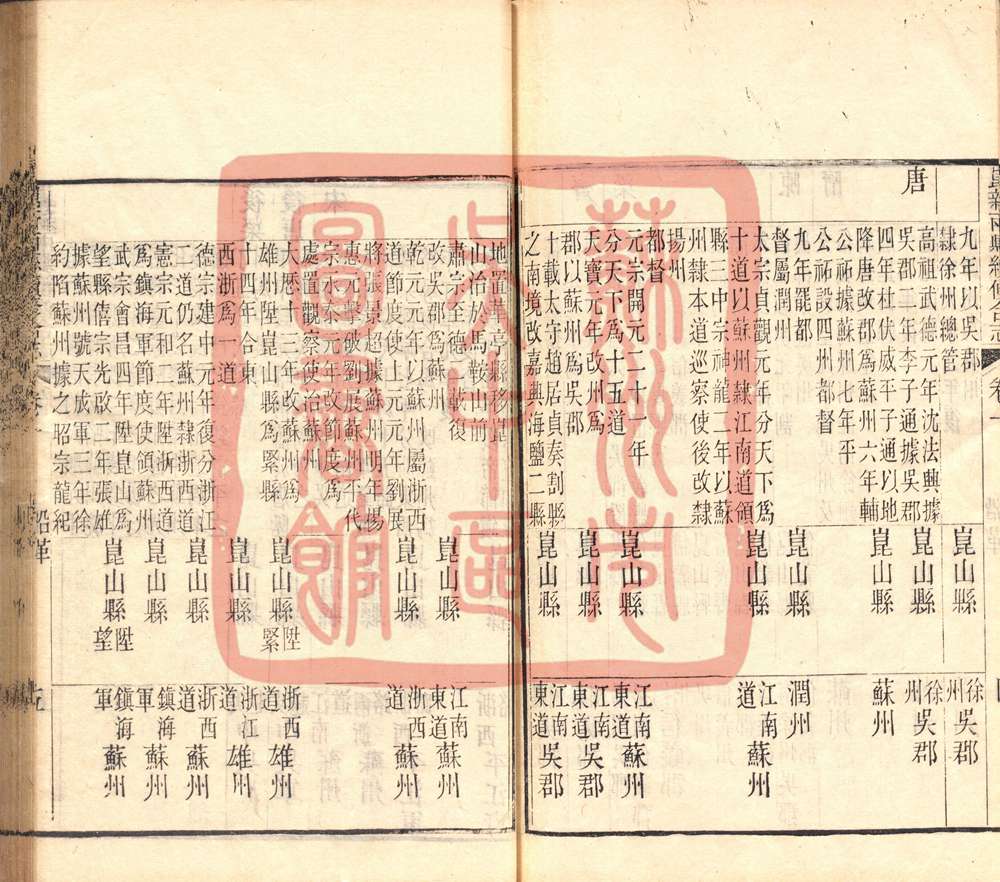 崑新兩縣續修合志 卷一
九年以吳郡
隸徐州總管
崑山縣
徐州 吳郡
唐
高祖武德元年沈法興據
吳郡二年李子通據吳郡
崑山縣
徐州 吳郡
四年杜伏威平子通以地
降唐改郡爲蘇州六年輔
公祏據蘇州七年平
崑山縣
蘇州
公祏設四州都督
九年罷都
督屬潤州
崑山縣
潤州
太宗貞觀元年分天下爲
十道以蘇州隸江南道領
縣三中宗神龍二年以蘇
州隸本道巡察使後改隸
揚州
都督
崑山縣
江南道 蘇州
元宗開元二十一年
分天下爲十五道
崑山縣
江南東道 蘇州
天寶元年改州爲
郡以蘇州爲吳郡
崑山縣
江南東道 吳郡
十載太守趙居貞奏割縣
之南境改嘉興海鹽二縣
崑山縣
江南東道 吳郡
地置華亭縣移崑
山治於馬鞍山前
肅宗至德二載復
改吳郡爲蘇州
崑山縣
江南東道 蘇州
乾元元年以蘇州屬浙西
道節度使上元元年劉展
將張景超據蘇州明年楊
惠元擊破劉展蘇州平代
宗永泰元年改節度爲
處置觀察使治蘇州
崑山縣
浙西道 蘇州
大曆十三年改蘇州爲
雄州陞崑山縣爲緊縣
崑山縣 陞緊
浙西道 雄州
十四年合東
西浙爲一道
崑山縣
浙江道 雄州
德宗建中元年復分浙江
二道仍名蘇州隸浙西道
崑山縣
浙西道 蘇州
憲宗元和二年陞浙西道
爲鎮海軍節度使領蘇州
崑山縣
鎮海軍 蘇州
武宗會昌四年陞崑山爲
望縣僖宗光啟二年張雄
據蘇州號天成軍三年徐
約陷蘇州據之昭宗龍紀
崑山縣 陞望
鎮海軍 蘇州
蘇州市
吳中區
圖書館